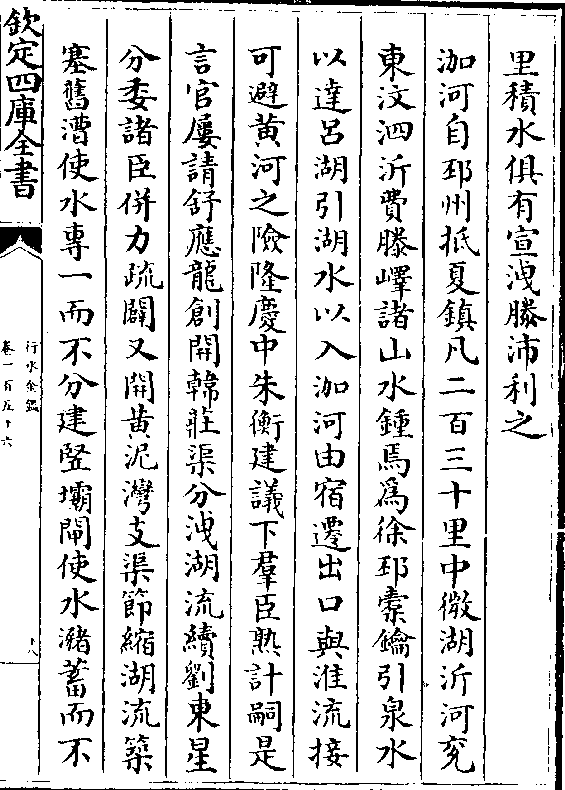 里積水俱有宣洩滕沛利之
泇河自邳州抵夏鎮凡二百三十里中微湖沂河兖
東汶泗沂費滕嶧諸山水鍾焉爲徐邳橐鑰引泉水
以達呂湖引湖水以入泇河由宿遷出口與淮流接
可避黄河之險隆慶中朱衡建議下羣臣熟計嗣是
言官屢請舒應龍創開韓莊渠分洩湖流續劉東星
分委諸臣併力疏闢又開黄泥灣支渠節縮湖流築
塞舊漕使水專一而不分建竪壩閘使水瀦蓄而不
欽定四庫全書
行水金鑑
卷一百五十六
十八